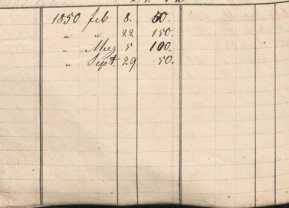 1850 feb 8. 60.
" " 22 150.
" 5 100.
" Sept. 29 50.